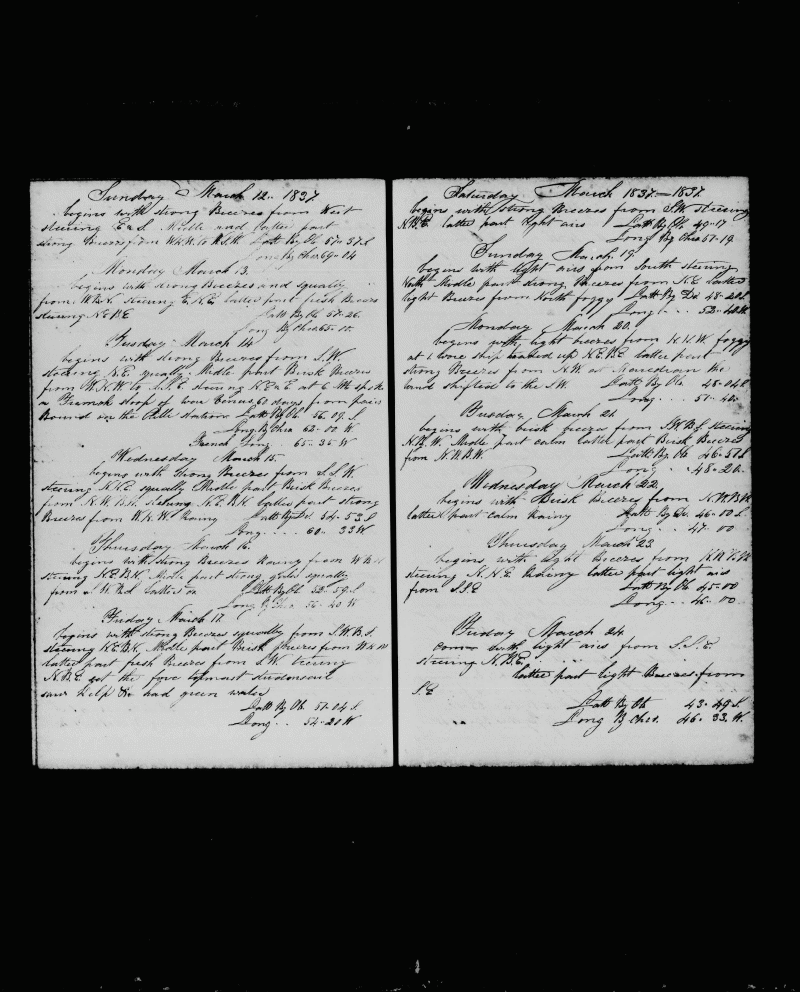 Sunday March 12 1837
begins with strong Breezes from West
steering E & S. Middle and latter part
strong Breezes from W.N.W. to W.S.W. Latt By Ob 57-57 S
Long By Chro 69-04
Monday March 13
begins with strong Breezes and squally
from W.B.N. steering E.N.E. latter part fresh Breezes
steering N.E.B.E Latt By Ob 57-26
Long By Chro 65-
Tuesday March 14
begins with strong Breezes from S.W.
steering N.E. squally Midle part Brisk Breezes
from W.N.W. to steering at 6 AM spoke
a French sloop of war Venus 60 days from
Bound on the station Latt By Ob 56-09 S
Long By Chro 62-00 W
French Long 65-35 W
Wednesday March 15
begins with strong Breezes from S.S.W.
steering N.N.E. squally Middle part Brisk Breezes
from N.W.B.W. steering N.E.B.N. latter part strong
Breezes from W.N.W. Rainy Latt By D 54-53 S
Long 60-33 W
Thursday March 16
begins with strong Breezes Rainy from
steering N.E.B.N. Midle part strong gales squally
from S.W. Latt By Ob 52-59 S
Long By Chro 56-40 W
Friday March 17
begins with strong Breezes squally from S.W.B.S.
steering N.E.B.N. Middle part Brisk Breezes from
latter part fresh Breezes from S.W. steering
N.B.E got the fore topmast
saw kelp &c had green water
Latt By Ob 51-04 S
Long 54-20 W
Saturday March 1837 — 1837
begins with strong Breezes from S.W. steering
N.B.E. latter part light airs Latt By Ob 49-17
Long By Chro 51-19
Sunday March 19
begins with light airs from South steering
North Midle part strong Breezes from N.E. latter
light Breezes from North foggy Latt By Dd 48-20 S
Long 52-40 W
Monday March 20
begins with light breezes from N.N.W. foggy
at 1 wore ship headed up N.E.B.E. latter part
strong Breezes from N.W. at Meredian the
wind shifted to the S.W. Latt By Ob 48-04 S
Long 51-40
Tuesday March 21
begins with brisk breezes from S.W.B.S. steering
N.B.W. Midle part calm latter part Brisk Breezes
from N.W.B.W. Latt By Ob 46-51 S
Long 48-20
Wednesday March 22
begins with Brisk Breezes from N.W.B.W.
latter part calm Rainy Latt By D 46-00 S
Long 47-00
Thursday March 23
begins with light Breezes from
steering N.N.E. Rainy latter part light airs
from S.S.E Latt By Ob 45-00
Long 46-00
Friday March 24
comes with light airs from S.S.E.
steering N.B.E.
latter part light Breezes from
S.E
Latt By Ob 43-49 S
Long By Chro 46-33 W